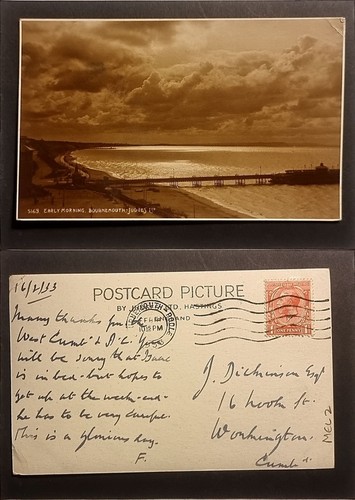 5163 EARLY MORNING. BOURNEMOUTH. JUDGES LTD
16/2/33
POSTCARD PICTURE
BY LTD. HASTINGS
ENGLAND
BOURNEMOUTH-POOLE
PM
Many thanks for
West Cumb'd D.C. You
will be sorry that Isaac
is in bed - but hopes to
get up at the week-end -
he has to be very careful.
This is a glorious day.
F.
J. Dickinson Esq
16 St.
Workington.
Cumb'd.
MEL2
ONE PENNY